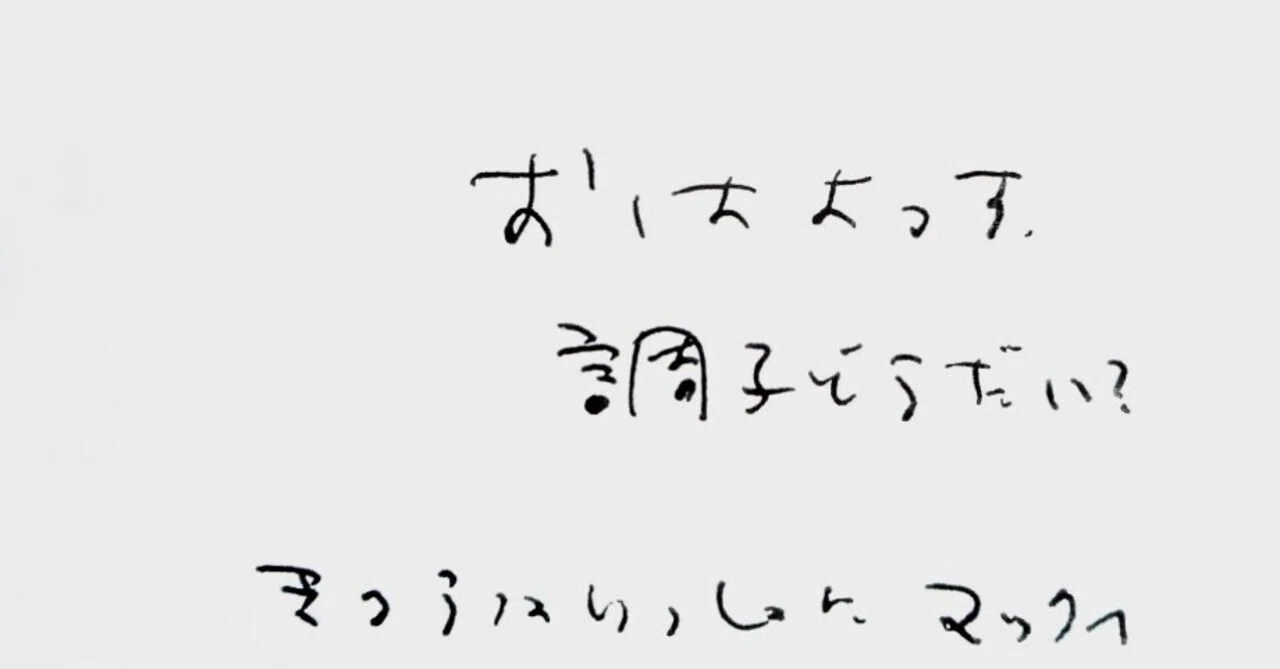 おはよっす.
調子どうだい?
きょうはいっしょに マックへ